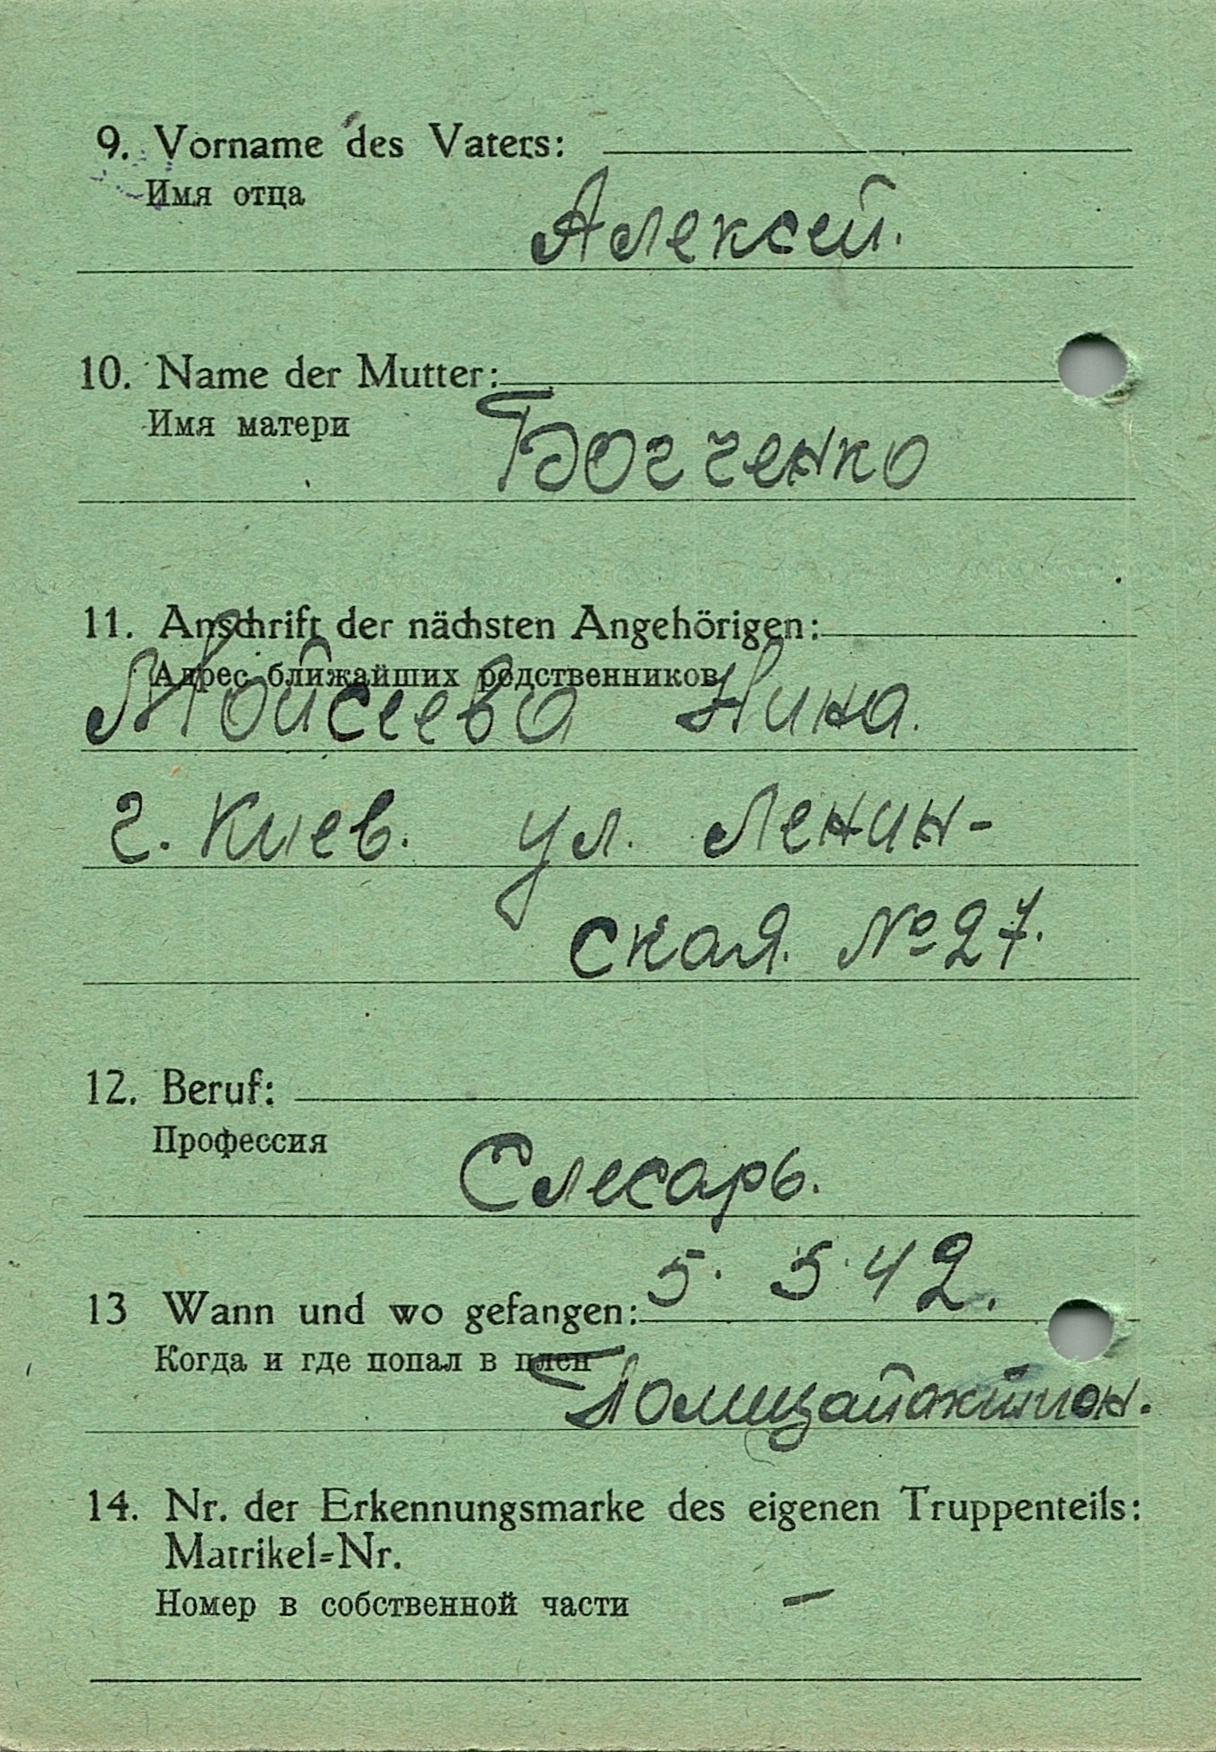 9. Vorname des Vaters:
Имя отца
Алексей.
10. Name der Mutter:
Имя матери
Богченко
11. Anschrift der nächsten Angehörigen:
Адрес ближайших родственников
Мойсеева Нина.
г. Киев. ул. Ленин-
ская. №27.
12. Beruf:
Профессия
Слесарь.
5. 5 42.
13 Wann und wo gefangen:
Когда и где попал в плен
14. Nr. der Erkennungsmarke des eigenen Truppenteils:
Matrikel=Nr.
Номер в собственной части
–